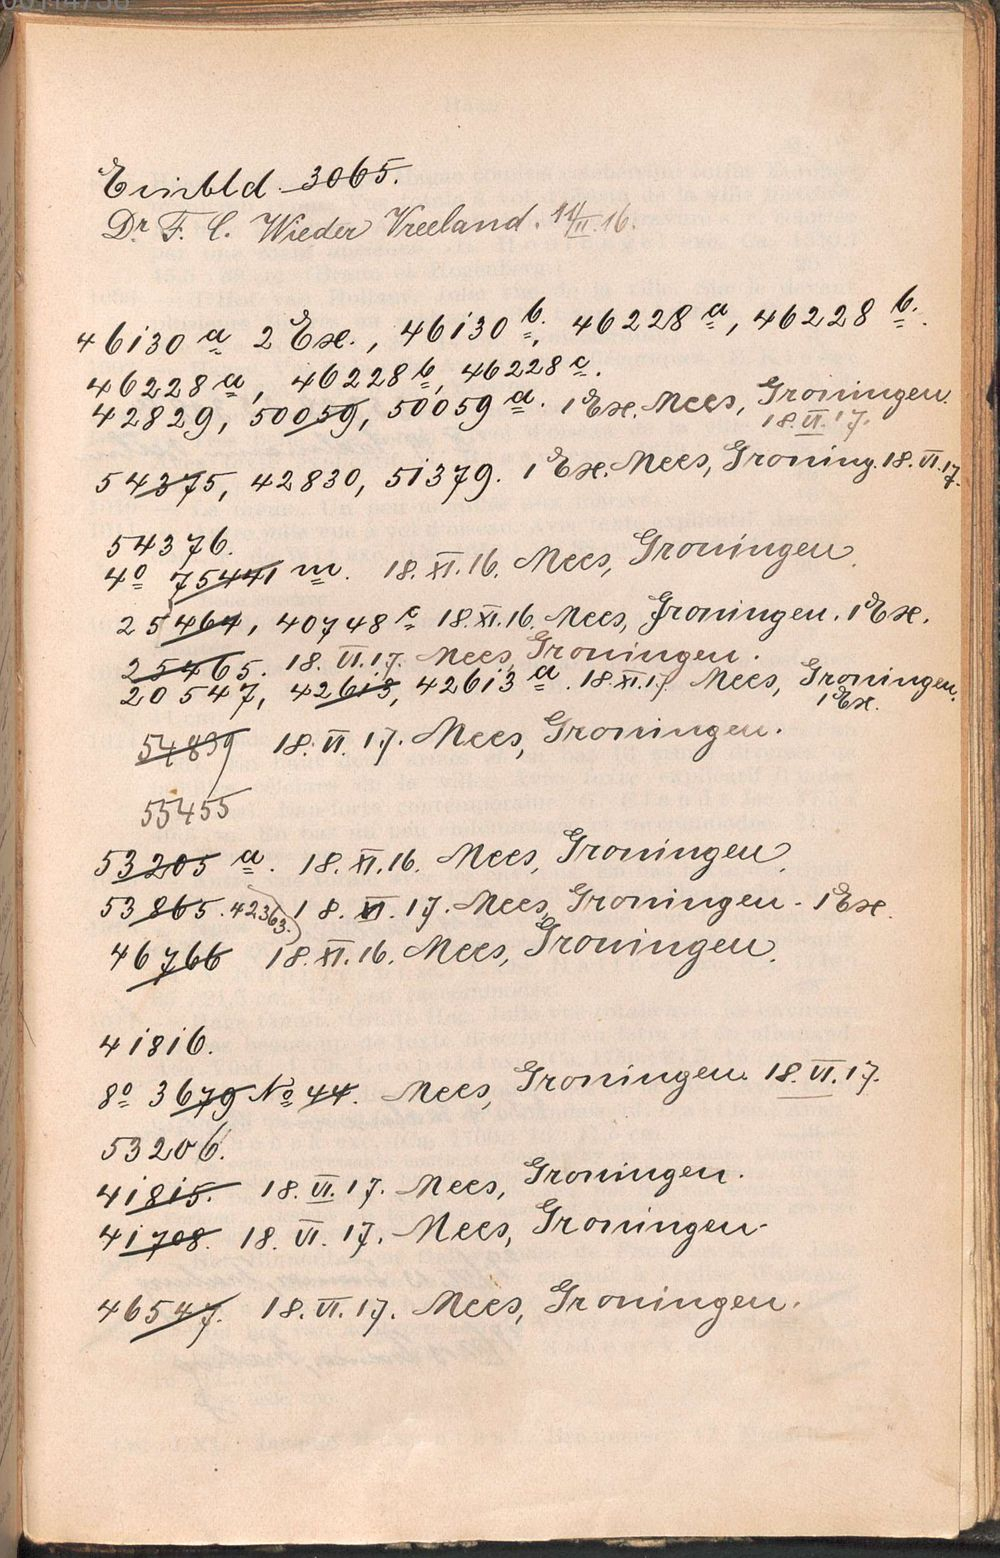 Einbld 3065.
Dr. F. C. Wieder Vreeland. 14/II.16.
46130 a 2 Ex., 46130 b, 46228 a, 46228 b.
46228 a, 46228 b, 46228 c.
42829, 50059, 50059 a. 1 Ex. Mees, Groningen.
18.VI.17.
54375, 42830, 51379. 1 Ex. Mees, Groning. 18.VI.17.
54376.
4o 75441 m. 18.XI.16. Mees, Groningen.
25464, 40748 c 18.XI.16. Mees, Groningen. 1 Ex.
25465. 18.VI.17. Mees, Groningen.
20547, 42613, 42613 a. 18.XI.17. Mees, Groningen.
1 Ex.
54839 18.VI.17. Mees, Groningen.
55455
53205 a. 18.XI.16. Mees, Groningen.
53865. 42363. 18.VI.17. Mees, Groningen. 1 Ex.
46766 18.XI.16. Mees, Groningen.
41816.
8o 3679 No 44. Mees, Groningen. 18.VI.17.
53206.
41815. 18.VI.17. Mees, Groningen.
41708. 18.VI.17. Mees, Groningen.
46547. 18.VI.17. Mees, Groningen.